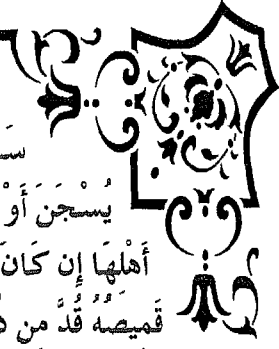 يُسْجَنَ أَوْ
أَهْلِهَا إِن كَانَ
قَمِيصَهُ قُدَّ مِن